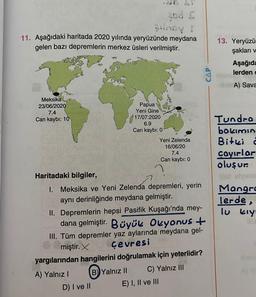 11. Aşağıdaki haritada 2020 yılında yeryüzünde meydana
gelen bazı depremlerin merkez üsleri verilmiştir.
Meksika
23/06/2020
7.4
Can kaybı: 10
Papua
Yeni Gine
17/07/2020
6.9
Can kaybı: 0
Yeni Zelenda
16/06/20
7.4
Can kaybı: 0
Haritadaki bilgiler,
I. Meksika ve Yeni Zelenda depremleri, yerin
aynı derinliğinde meydana gelmiştir.
II. Depremlerin hepsi Pasifik Kuşağı'nda mey-
dana gelmiştir. Büyük Okyonus +
çevresi
III. Tüm depremler yaz aylarında meydana gel-
miştir. X
yargılarından hangilerini doğrulamak için yeterlidir?
A) Yalnız I
B) Yalnız II
C) Yalnız III
D) I ve II
E) I, II ve III
ÇAP
13. Yeryüzü
şakları v
Aşağıda
lerden
A) Sava
Tundra
bakımın
Bitki
çayırlar
oluşur
Mangro
lerde,
lu kıy